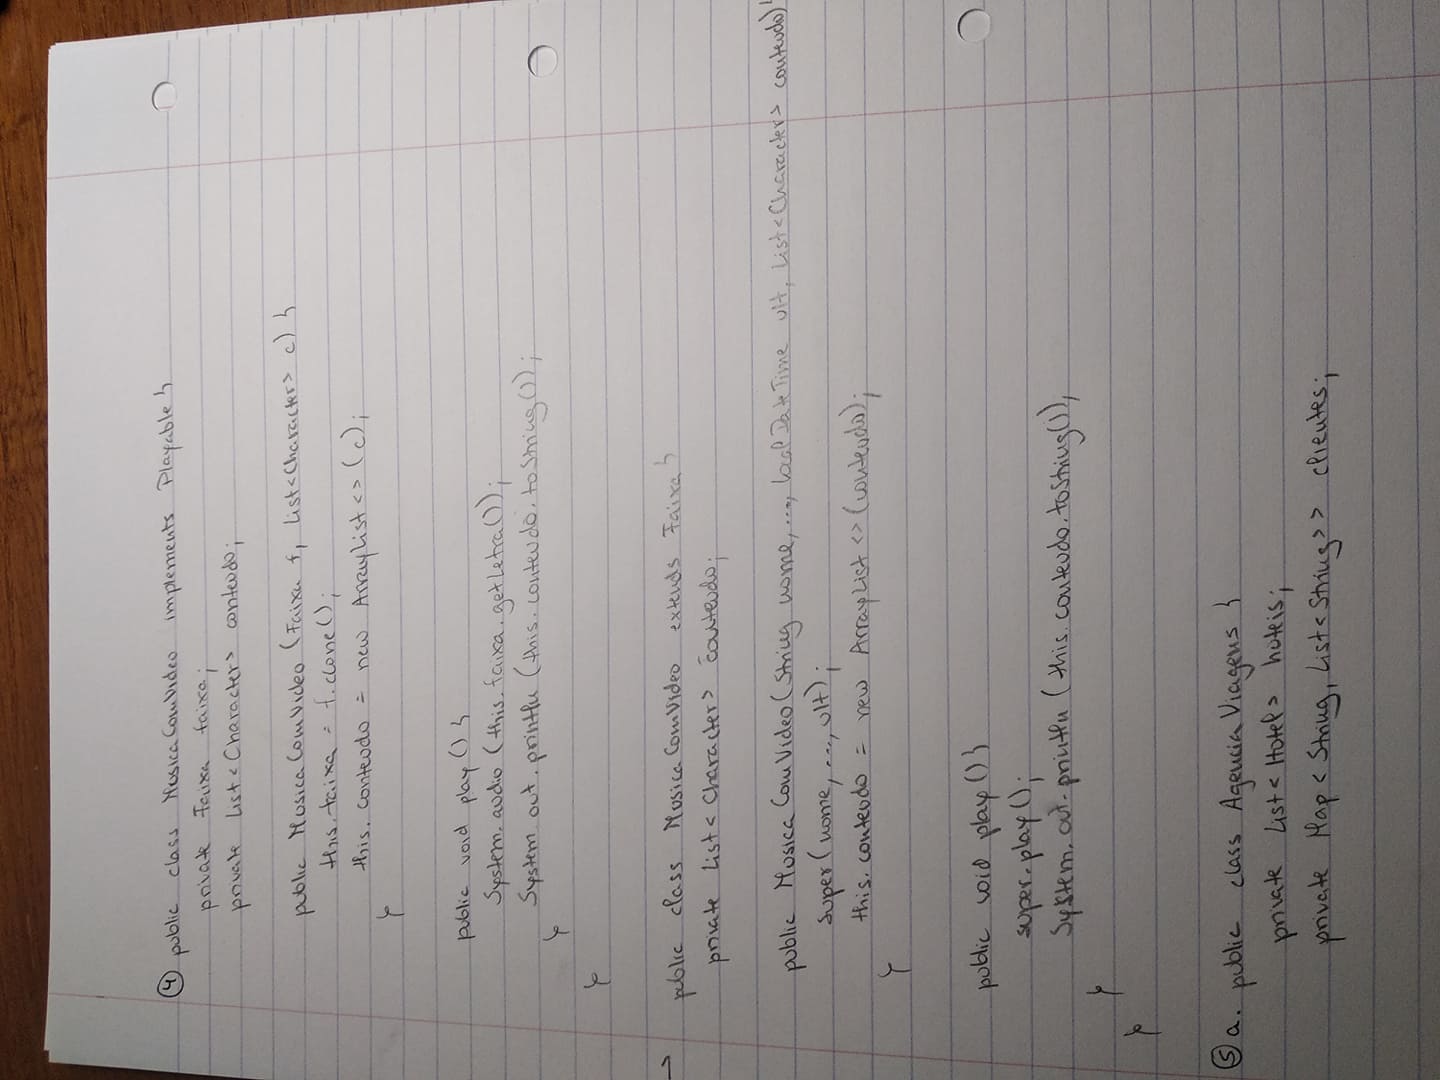 ④ public class MusicaComVideo implements Playable {
private Faixa faixa;
private List<Character> conteudo;
public MusicaComVideo (Faixa f, List<Character> c) {
this.faixa = f.clone();
this.conteudo = new ArrayList<>(c);
}
public void play () {
System.audio (this.faixa.getLetra());
System.out.println (this.conteudo.toString());
}
}
→ public class MusicaComVideo extends Faixa {
private List<Character> conteudo;
public MusicaComVideo (String nome, ..., LocalDateTime ult, List<Character> conteudo) {
super (nome, ..., ult);
this.conteudo = new ArrayList<>(conteudo);
}
public void play () {
super.play();
System.out.println (this.conteudo.toString());
}
}
⑤ a. public class AgenciaViagens {
private List<Hotel> hoteis;
private Map<String, List<String>> clientes;